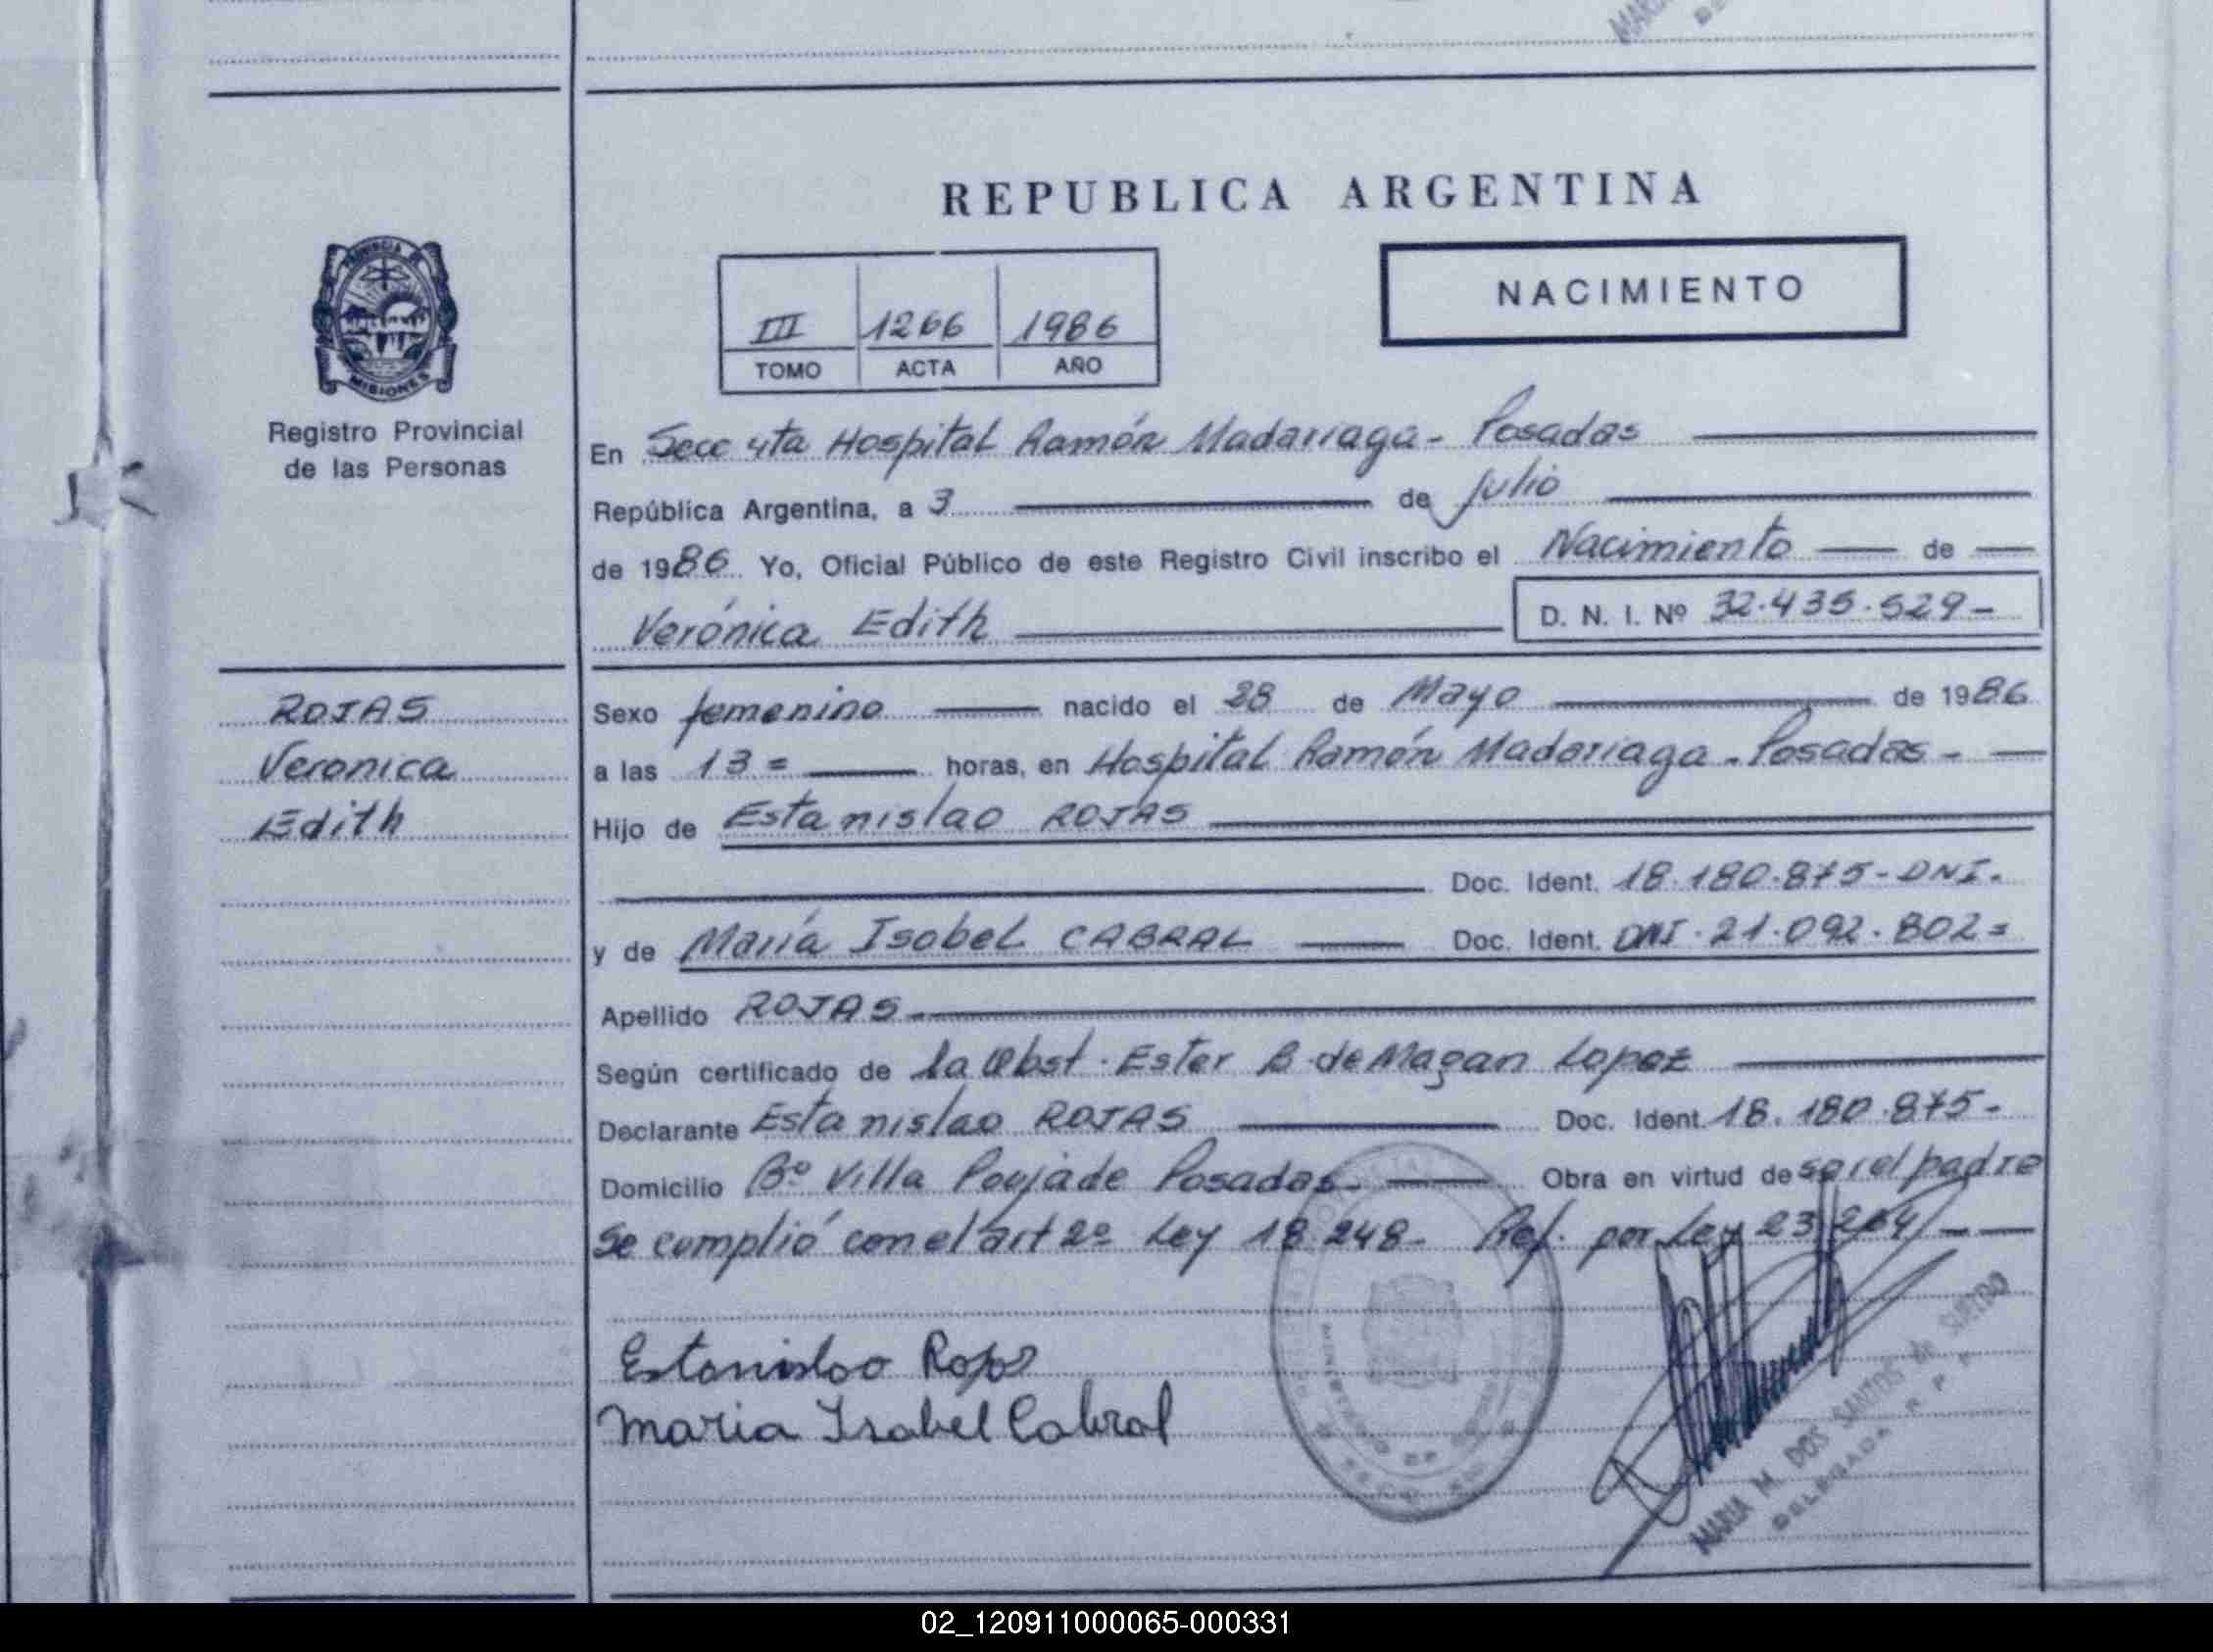 REPUBLICA ARGENTINA
NACIMIENTO
III 1266 1986
TOMO ACTA AÑO
MISIONES
Registro Provincial
de las Personas
En Secc 4ta Hospital Ramón Madariaga - Posadas
República Argentina, a 3 de Julio
de 1986 Yo, Oficial Público de este Registro Civil inscribo el Nacimiento de
Verónica Edith D. N. I. Nº 32.435.529-
ROJAS
Veronica
Edith
Sexo femenino nacido el 28 de Mayo de 1986
a las 13 = horas, en Hospital Ramón Madariaga - Posadas -
Hijo de Estanislao ROJAS
Doc. Ident. 18.180.875 - DNI.
y de María Isabel CABRAL Doc. Ident. DNI. 21.092.802=
Apellido ROJAS
Según certificado de la Obst. Ester B. de Magan Lopez
Declarante Estanislao ROJAS Doc. Ident. 18.180.875-
Domicilio Bº Villa Poujade Posadas- Obra en virtud de ser el padre
Se cumplió con el art 2º Ley 18 248- Ref. por Ley 23/264/-
Estanislao Rojas
Maria Isabel Cabral
MARIA M. DOS SANTOS de
DELEGADA R P P
02_120911000065-000331